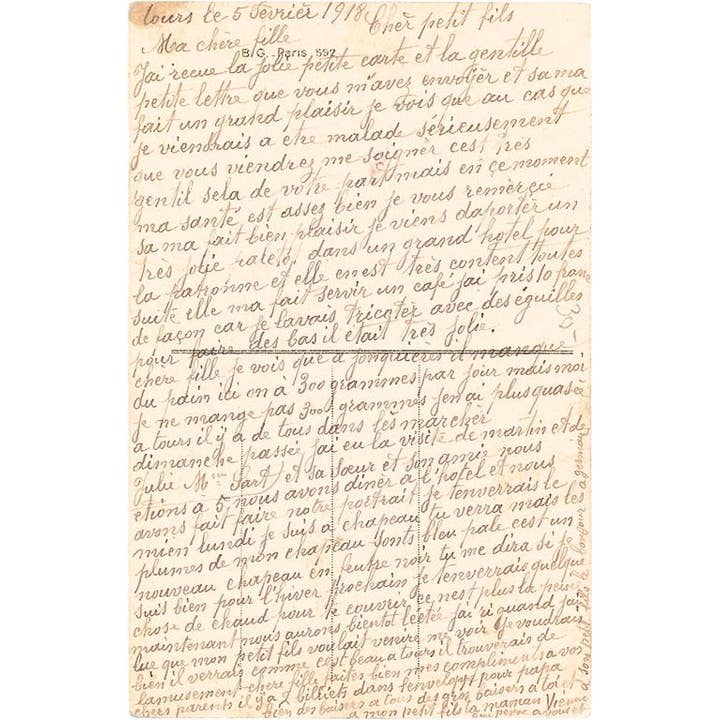 Tours le 5 Février 1918 Chèr petit fils
Ma chère fille
B.G. Paris 592
J'ai recue la jolie petite carte et la gentille
petite lettre que vous m'avez envoyér et sa ma
fait un grand plaisir je vois que au cas que
je viendrais a etre malade sérieusement
que vous viendrez me soignér cest très
gentil sela de votre part mais en çe moment
ma santé est assez bien je vous remèrçie
sa ma fait bien plaisir je viens daportér un
très jolie dans un grand hotel pour
la patronne et elle enest très content toutes
suite elle ma fait servir un café jai pris 10 franc
de façon car je lavais tricotér avec des éguilles
pour faire des bas il était très jolie.
chere fille je vois que a jonquières il manque
du pain ici on à 300 grammes par jour mais moi
je ne mange pas 300 grammes jen ai plus quasé
a tours il y a de tous dans lès marchér
dimanche passée jai eu la visite de martin et de
Julie Mme Sart et sa sœur et son amie nous
etions à 5 nous avons dinér à l'hotel et nous
avons fait faire notre portrait je tenverrais le
mien lundi je suis a chapeau tu verra mais les
plumes de mon chapeau sonts bleu pale cest un
nouveau chapeau en feutre noir tu me dira si je
suis bien pour l'hiver prochain je tenverrais quelque
chose de chaud pour te couvrir ce nest plus la peine
maintenant nous aurons bientot jai ri quand jai
lue que mon petit fils voulait venire me voir je voudrais
bien il verrais comme cest beau a tours il trouverais de
lamusement chere fille faites bien mes compliments a vos
chers parents il y a billiets dans lenvelopp pour papa
bien des baisers a tous des gros baisers a toi et
a mon petit fils ta maman Vienne